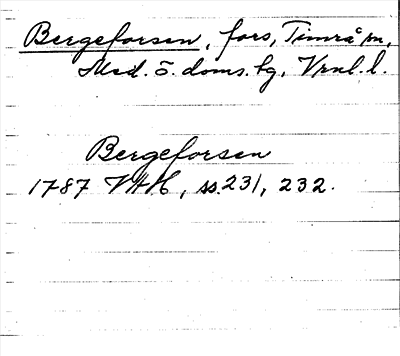 Bergeforsen, fors, Timrå sn,
Med. ö. doms. hg, Vrnl. l.
Bergeforsen
1787 VAH, ss. 231, 232.